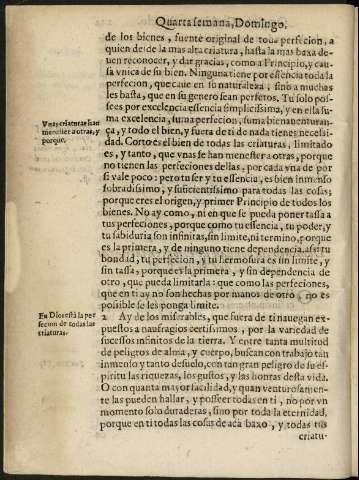 Quarta semana, Domingo.
de los bienes, fuente original de toda perfecion, a
quien desde la mas alta criatura, hasta la mas baxa de-
uen reconocer, y dar gracias, como a Principio, y cau-
sa vnica de su bien. Ninguna tiene por essencia toda la
perfecion, que caue en su naturaleza, sino a muchas
les basta, que en su genero sean perfetos. Tu solo pos-
sees por excelencia essencia simplicissima, y en ella su-
ma excelencia, suma perfecion, suma bienauenturan-
Vnas criaturas han
menester a otras, y
porque.
ça, y todo el bien, y fuera de ti de nada tienes necessi-
dad. Corto es el bien de todas las criaturas, limitado
es, y tanto, que vnas se han menester a otras, porque
no tienen las perfeciones dellas, por cada vna de por
si vale poco: pero tu ser y tu essencia, es bien inmenso
sobradissimo, y suficientissimo para todas las cosas;
porque eres el origen, y primer Principio de todos los
bienes. No ay como, ni en que se pueda poner tassa a
tus perfeciones, porque como tu essencia, tu poder, y
tu sabiduria son infinitas, sin limite, ni termino, porque
es la primera, y de ninguno tiene dependencia, assi tu
bondad, tu perfecion, y tu hermosura es sin limite, y
sin tassa, porque es la primera, y sin dependencia de
otro, que pueda limitarla: que como las perfeciones,
que en ti ay no son hechas por manos de otro no es
possible se les ponga limite.
En Dios está la per
fecion de todas las
criaturas.
2 Ay de los miserables, que fuera de ti nauegan ex-
puestos a naufragios certissimos, por la variedad de
sucessos infinitos de la tierra. Y entre tanta multitud
de peligros de alma, y cuerpo, buscan con trabajo tan
inmenso y tanto desuelo, con tan gran peligro de su es-
piritu las riquezas, los gustos, y las honras desta vida.
O con quanta mayor facilidad, y quan venturosamen-
te las pueden hallar, y posseer todas en ti, no por vn
momento solo duraderas, sino por toda la eternidad,
porque en ti todas las cosas de acá baxo, y todas tus
criatu-